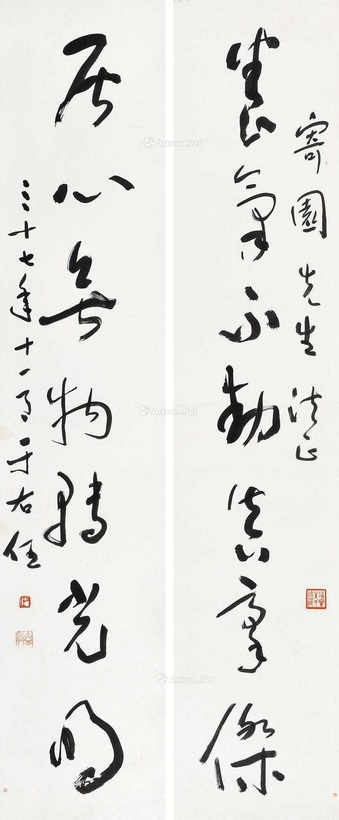 寄園先生法正
養氣不動真豪傑
居心無物轉光明
三十七年十一月于右任